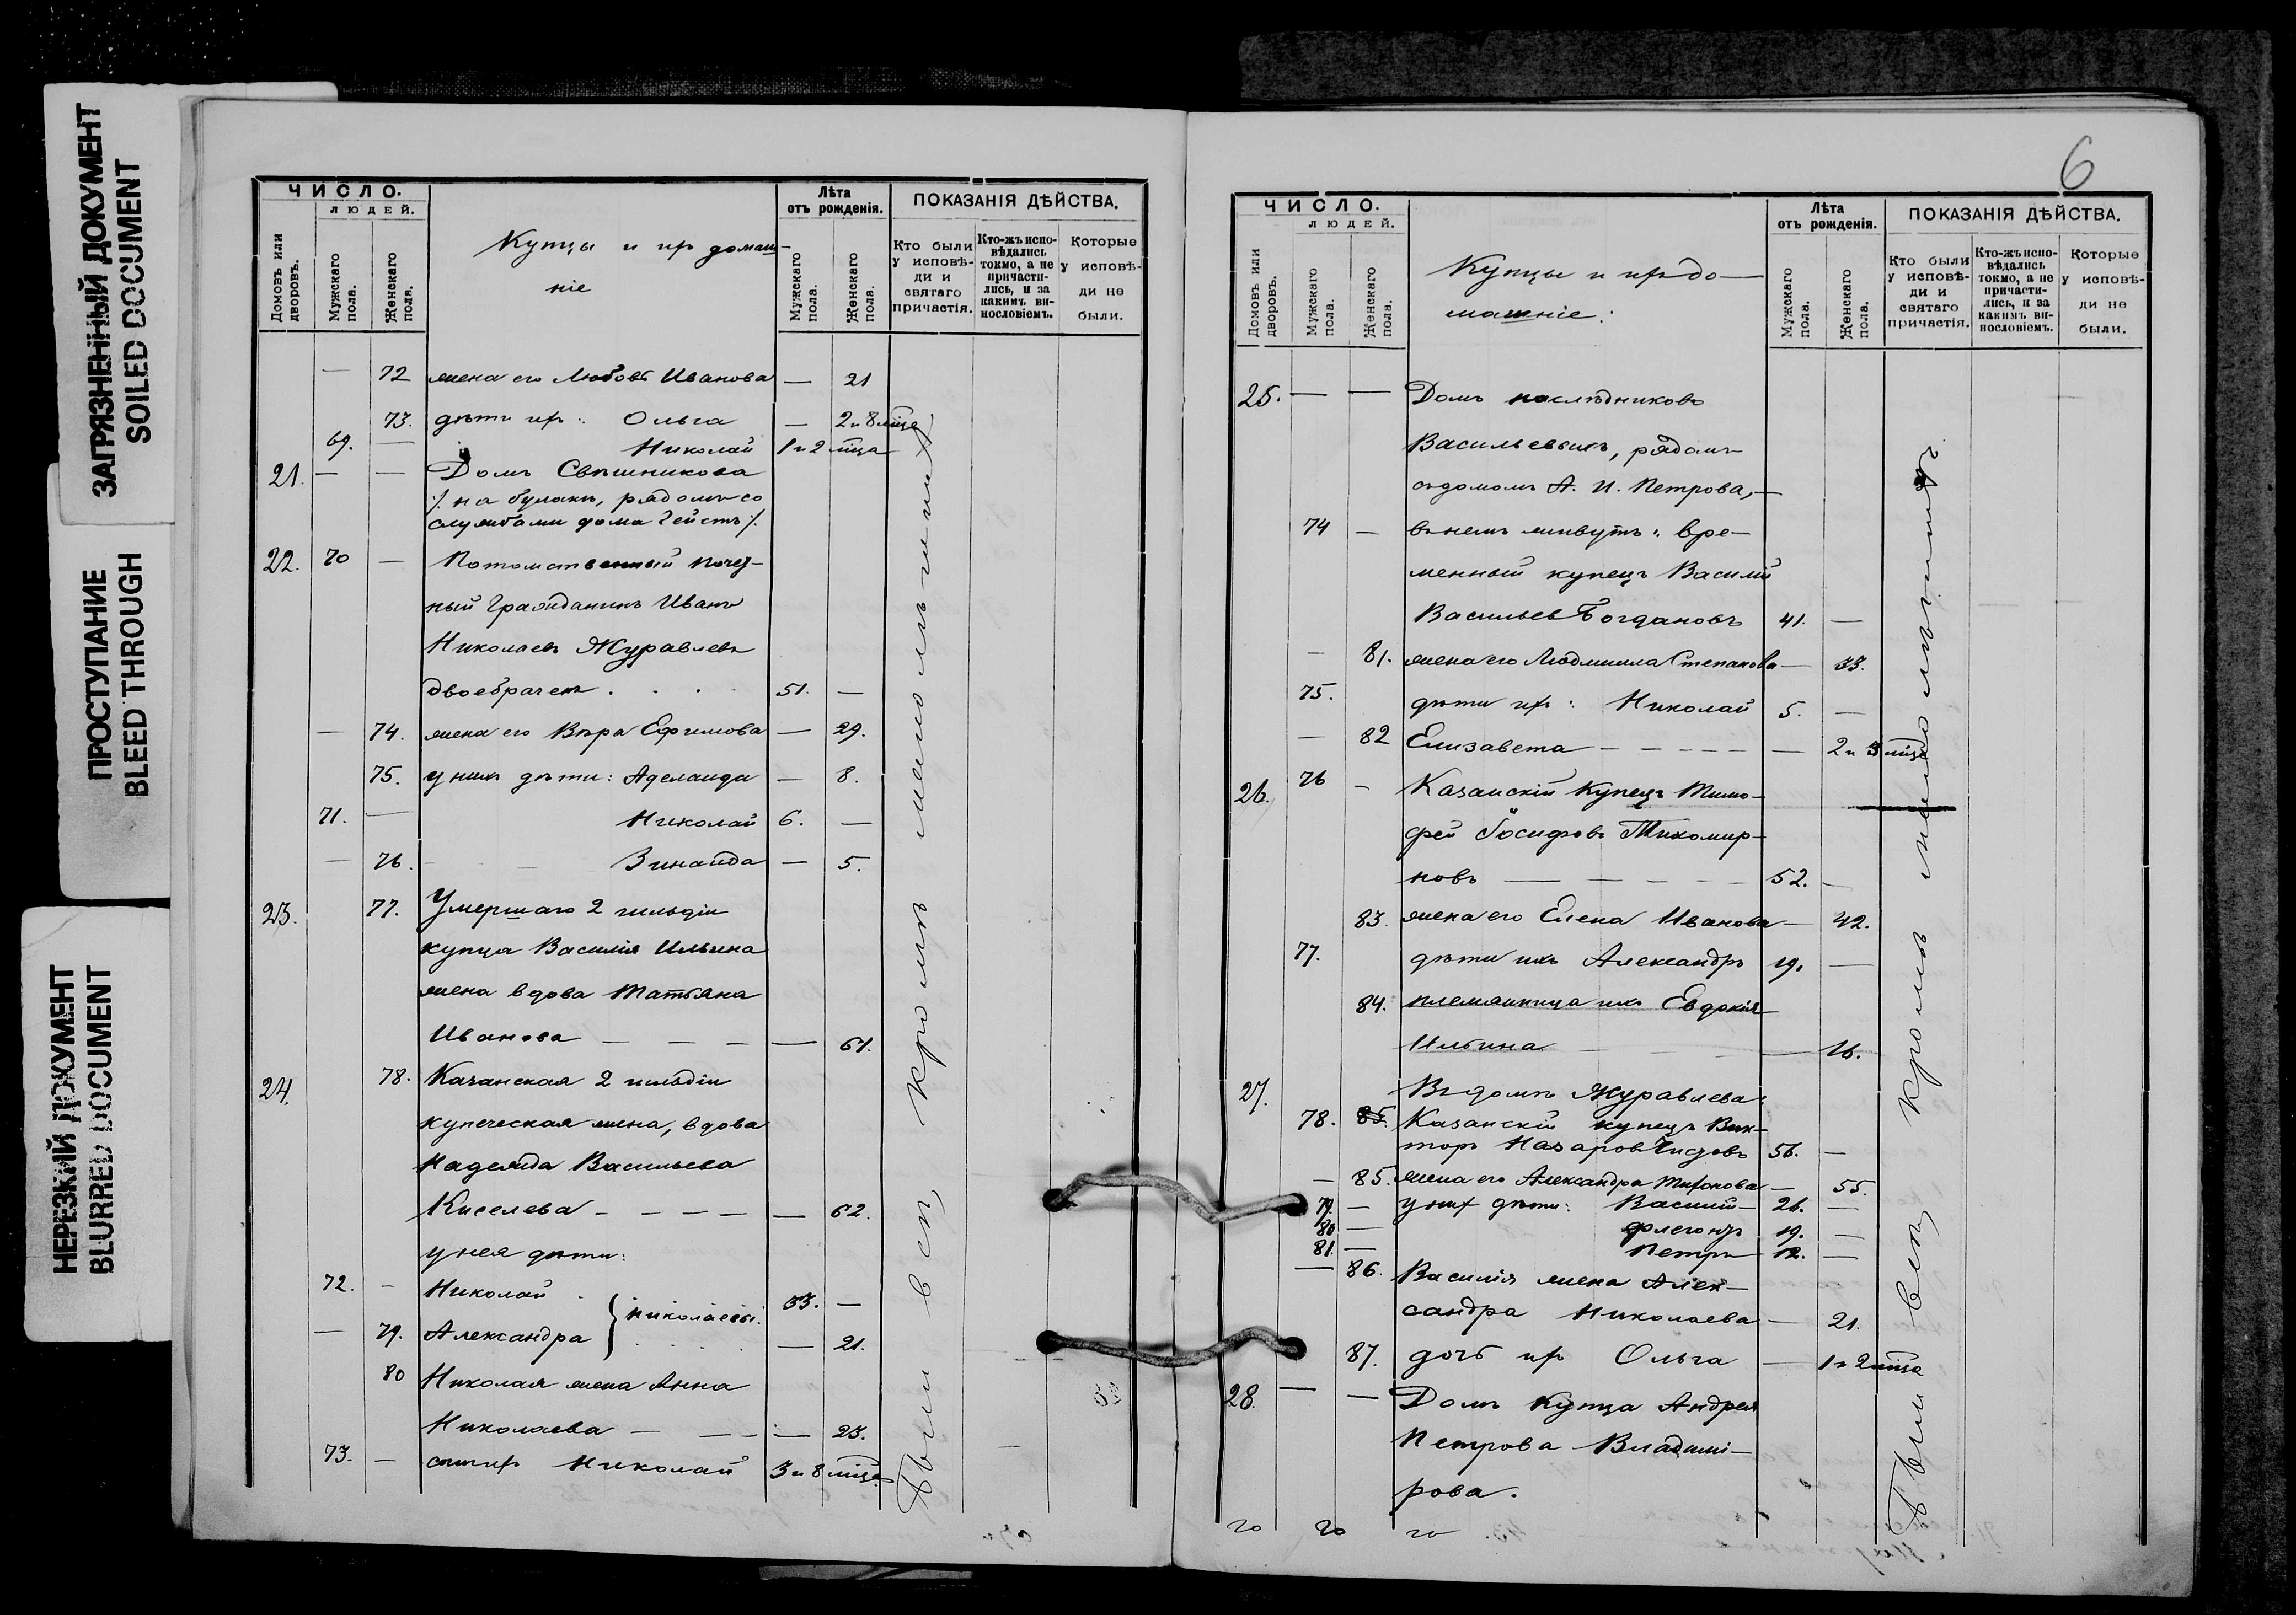 ЗАГРЯЗНЕННЫЙ ДОКУМЕНТ
SOILED DOCUMENT
ПРОСТУПАНИЕ
BLEED THROUGH
НЕРЕЗКИЙ ДОКУМЕНТ
BLURRED DOCUMENT
ЧИСЛО.
людей.
Домовъ или дворовъ.
Мужскаго пола.
Женскаго пола.
Купцы и их домаш-
ніе
Лѣта
отъ рожденія.
Мужскаго пола.
Женскаго пола.
ПОКАЗАНІЯ ДѢЙСТВА.
Кто были у исповѣ-ди и святаго причастія.
Кто-жъ испо-вѣдались токмо, а не причасти-лись, и за какимъ ви-нословіемъ.
Которые у исповѣ-ди не были.
— 72 жена его Любовь Иванова — 21
73. дѣти их: Ольга — 2 и 8 мѣца
69. — Николай 1 и 2 мѣца
21. — — Домъ Свѣшникова
/. на булакѣ, рядомъ со
службами дома Гейстъ /.
22. 70 — Потомственный почет-
ный Гражданинъ Иванъ
Николаевъ Журавлевъ
двоебраченъ . . . . 51. —
— 74. жена его Вѣра Ефимова — 29.
75. у нихъ дѣти: Аделаида — 8.
71. — Николай 6. —
— 76. Зинаида — 5.
23. 77. Умершаго 2 гильдіи
купца Василія Ильина
жена вдова Татьяна
Иванова — — — — 61.
24. 78. Казанская 2 гильдіи
купеческая жена, вдова
Надежда Васильева
Киселева — — — — — 62.
у нея дѣти:
72. — Николай } Николаевы. 33. —
— 79. Александра — 21.
80 Николая жена Анна
Николаева — — — — 23.
73. — сынъ их Николай 3 и 8 мѣца
Были всѣ, кромѣ малолѣтнихъ
6
ЧИСЛО.
людей.
Домовъ или дворовъ.
Мужскаго пола.
Женскаго пола.
Купцы и их до—
машніе:
Лѣта
отъ рожденія.
Мужскаго пола.
Женскаго пола.
ПОКАЗАНІЯ ДѢЙСТВА.
Кто были у исповѣ-ди и святаго причастія.
Кто-жъ испо-вѣдались токмо, а не причасти-лись, и за какимъ ви-нословіемъ.
Которые у исповѣ-ди не были.
25. — — Домъ наслѣдниковъ
Васильевыхъ, рядомъ
съ домомъ А. И. Петрова, —
74 — въ немъ живутъ: вре-
менный купецъ Василій
Васильев Богдановъ 41. —
— 81. жена его Людмила Степанова — 33.
75. дѣти их: Николай 5. —
— 82 Елизавета — — — — — 2 и 3 мѣца
26. 76 — Казанскій Купецъ Тимо-
фей Іосифовъ Тихомир-
новъ — — — — 52. —
83. жена его Елена Иванова — 42.
77. дѣти ихъ Александръ 19. —
84. племянница ихъ Евдокія
Ильина — 16.
27. Въ домѣ Журавлева:
78. 85. Казанскій купецъ Вик-
торъ Назаров Чистовъ 56. —
— 85. жена его Александра — 55.
79. — у них дѣти: Василій — 26. —
80 — Флегонтъ 19. —
81. — Петръ 12. —
— 86. Василія жена Алек-
сандра Николаева — 21.
87. дочь их Ольга — 1 и 2 мѣца
28. — — Домъ Купца Андрея
Петрова Владимі-
рова.
Были всѣ, кромѣ малолѣтнихъ